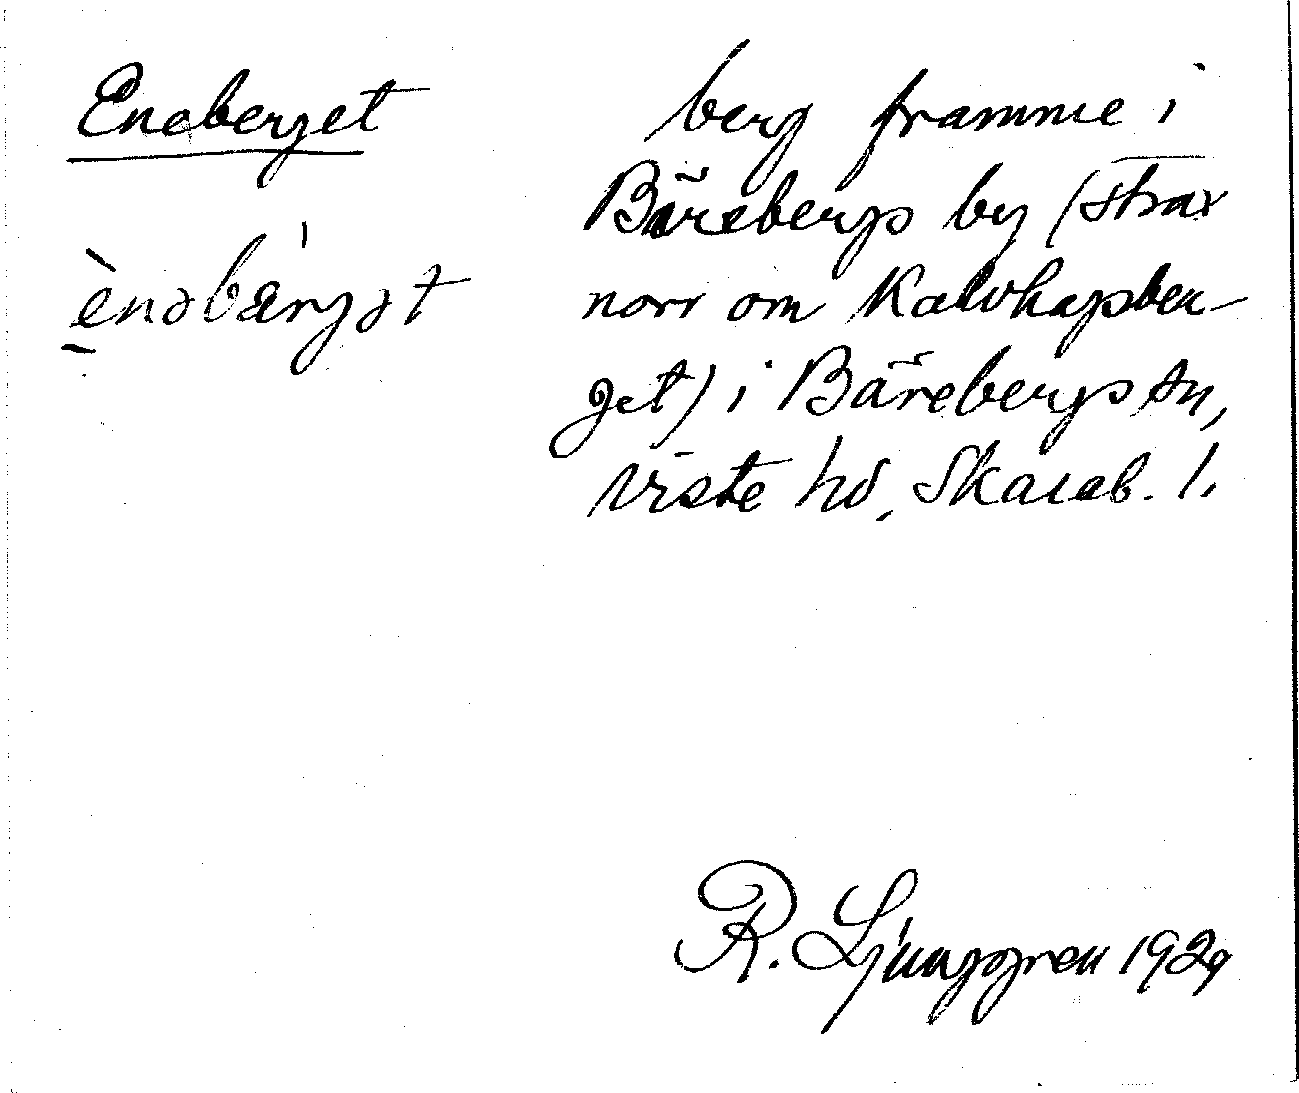 Eneberget
ènəbærgət
berg framme i
Bärebergs by (strax
norr om Kalvhagsber-
get) i Bärebergs sn,
Viste hd, Skarab. l.
R. Ljunggren 1929